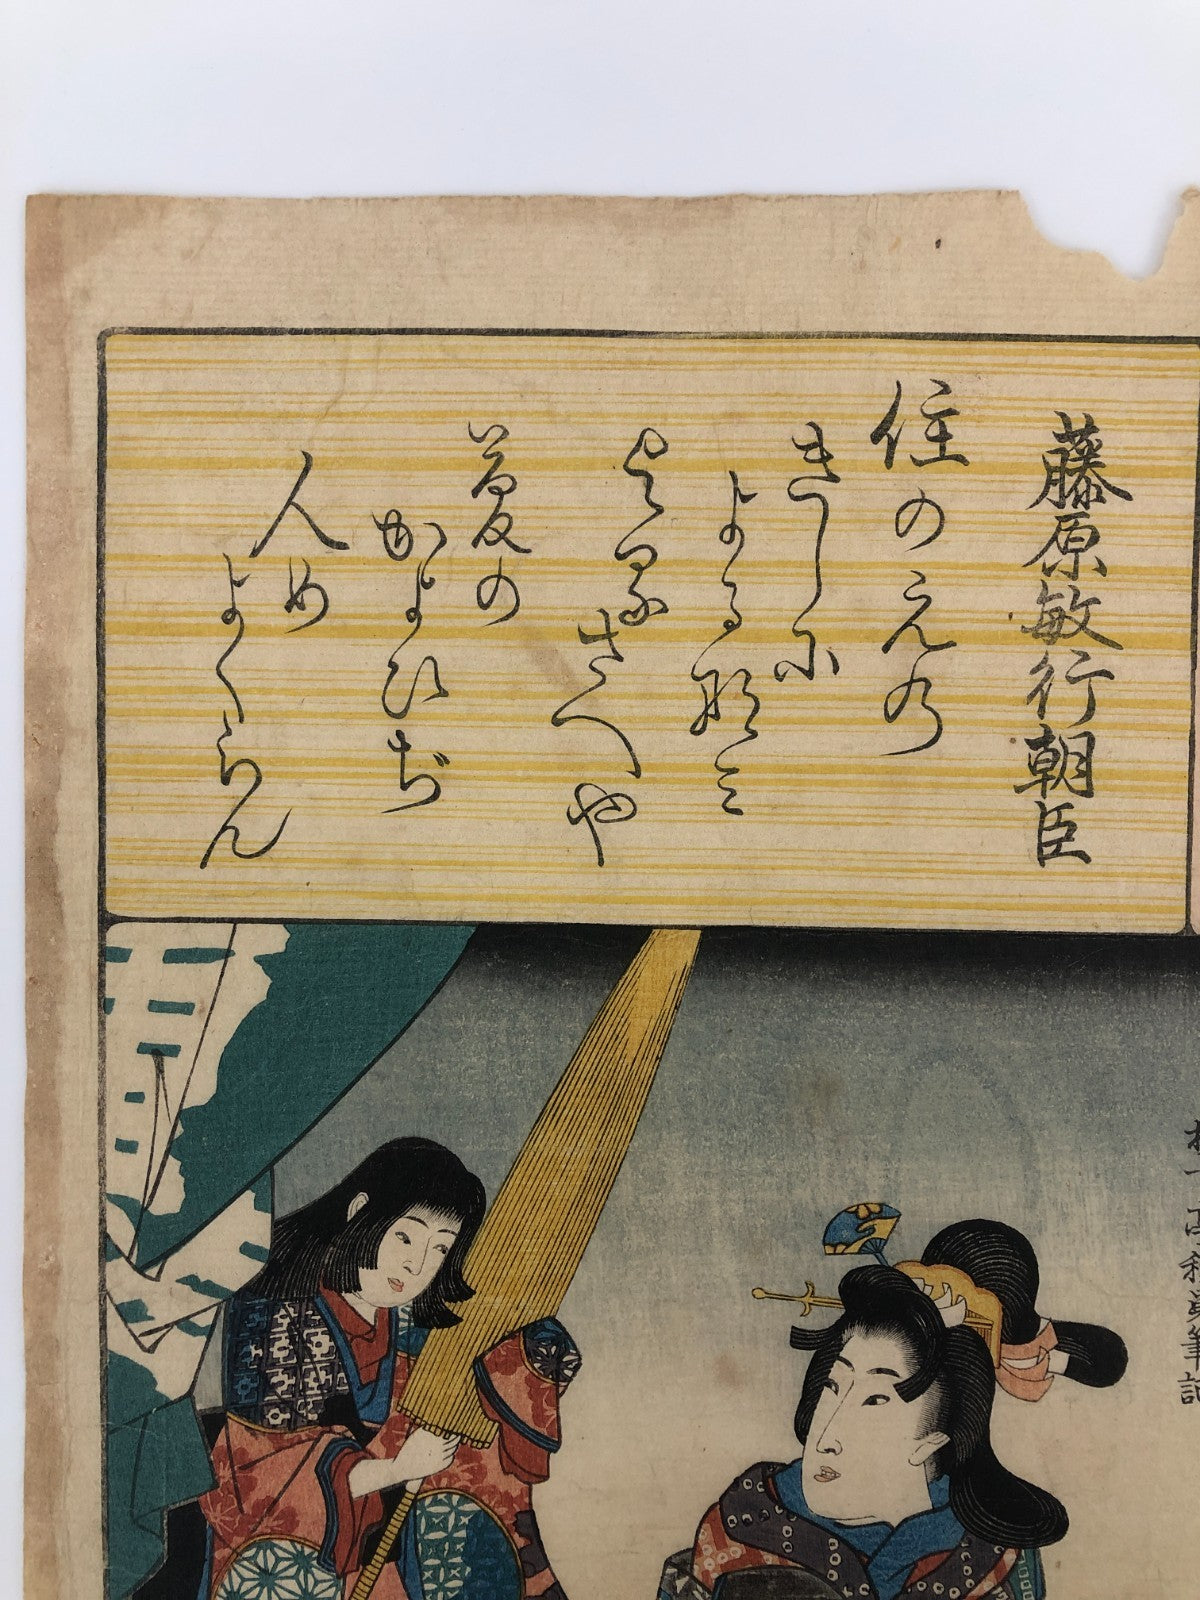 藤原敏行朝臣
住のえの
きしに
よる那ミ
よるさへや
夢の
かよひぢ
人め
よくらん